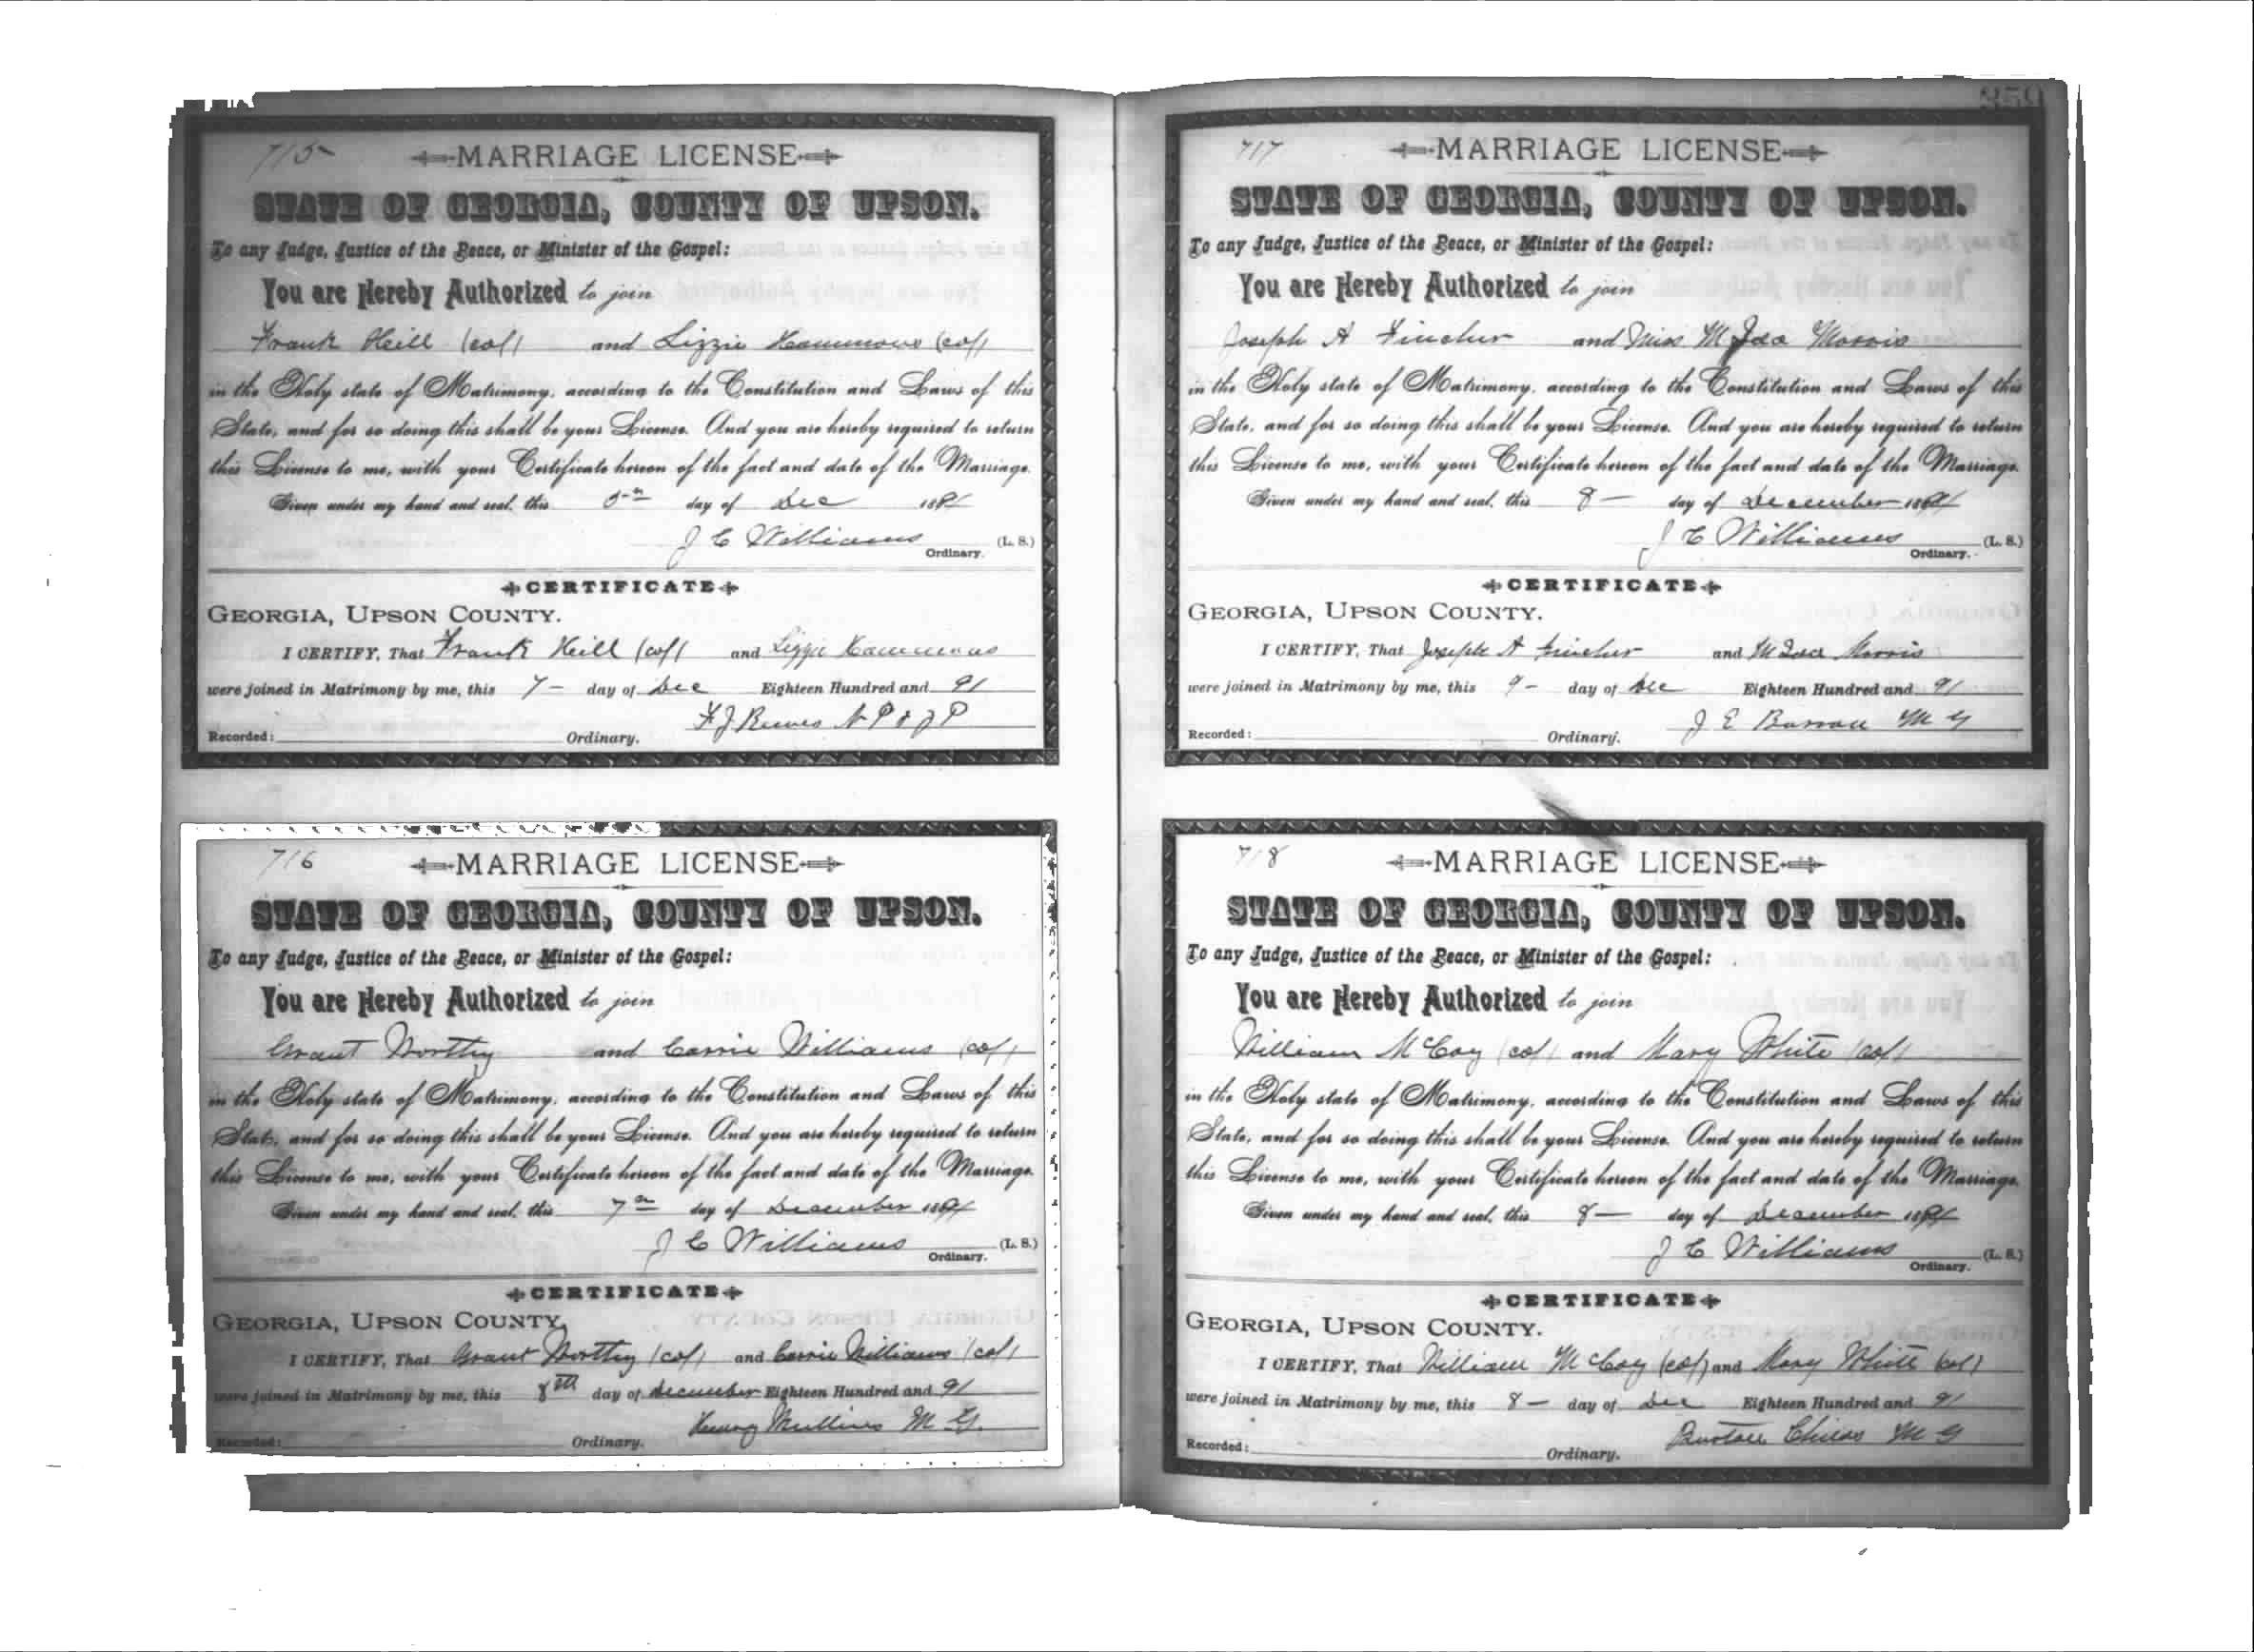 715
MARRIAGE LICENSE
STATE OF GEORGIA, COUNTY OF UPSON.
To any Judge, Justice of the Peace, or Minister of the Gospel:
You are Hereby Authorized to join
Frank Heill (col) and Lizzie Hammons (col)
in the Holy state of Matrimony, according to the Constitution and Laws of this
State, and for so doing this shall be your License. And you are hereby required to return
this License to me, with your Certificate hereon of the fact and date of the Marriage.
Given under my hand and seal, this 5th day of Dec 1891
J C Williams (L. S.)
Ordinary.
CERTIFICATE
GEORGIA, UPSON COUNTY.
I CERTIFY, That Frank Heill (col) and Lizzie Hammons
were joined in Matrimony by me, this 7 - day of Dec Eighteen Hundred and 91
F J Reeves N P & J P
Recorded: Ordinary.
716
MARRIAGE LICENSE
STATE OF GEORGIA, COUNTY OF UPSON.
To any Judge, Justice of the Peace, or Minister of the Gospel:
You are Hereby Authorized to join
Grant Worthy and Carrie Williams (col)
in the Holy state of Matrimony, according to the Constitution and Laws of this
State, and for so doing this shall be your License. And you are hereby required to return
this License to me, with your Certificate hereon of the fact and date of the Marriage.
Given under my hand and seal, this 7th day of December 1891
J C Williams (L. S.)
Ordinary.
CERTIFICATE
GEORGIA, UPSON COUNTY.
I CERTIFY, That Grant Worthy (col) and Carrie Williams (col)
were joined in Matrimony by me, this 8th day of December Eighteen Hundred and 91
Henry Mullins M G.
Recorded: Ordinary.
359
717
MARRIAGE LICENSE
STATE OF GEORGIA, COUNTY OF UPSON.
To any Judge, Justice of the Peace, or Minister of the Gospel:
You are Hereby Authorized to join
Joseph A Fincher and Miss M Ida Morris
in the Holy state of Matrimony, according to the Constitution and Laws of this
State, and for so doing this shall be your License. And you are hereby required to return
this License to me, with your Certificate hereon of the fact and date of the Marriage.
Given under my hand and seal, this 8 - day of December 1891
J C Williams (L. S.)
Ordinary.
CERTIFICATE
GEORGIA, UPSON COUNTY.
I CERTIFY, That Joseph A Fincher and M Ida Morris
were joined in Matrimony by me, this 9 - day of Dec Eighteen Hundred and 91
J E Barron M G
Recorded: Ordinary.
718
MARRIAGE LICENSE
STATE OF GEORGIA, COUNTY OF UPSON.
To any Judge, Justice of the Peace, or Minister of the Gospel:
You are Hereby Authorized to join
William McCoy (col) and Mary White (col)
in the Holy state of Matrimony, according to the Constitution and Laws of this
State, and for so doing this shall be your License. And you are hereby required to return
this License to me, with your Certificate hereon of the fact and date of the Marriage.
Given under my hand and seal, this 8 - day of December 1891
J C Williams (L. S.)
Ordinary.
CERTIFICATE
GEORGIA, UPSON COUNTY.
I CERTIFY, That William McCoy (col) and Mary White (col)
were joined in Matrimony by me, this 8 - day of Dec Eighteen Hundred and 91
M G
Recorded: Ordinary.